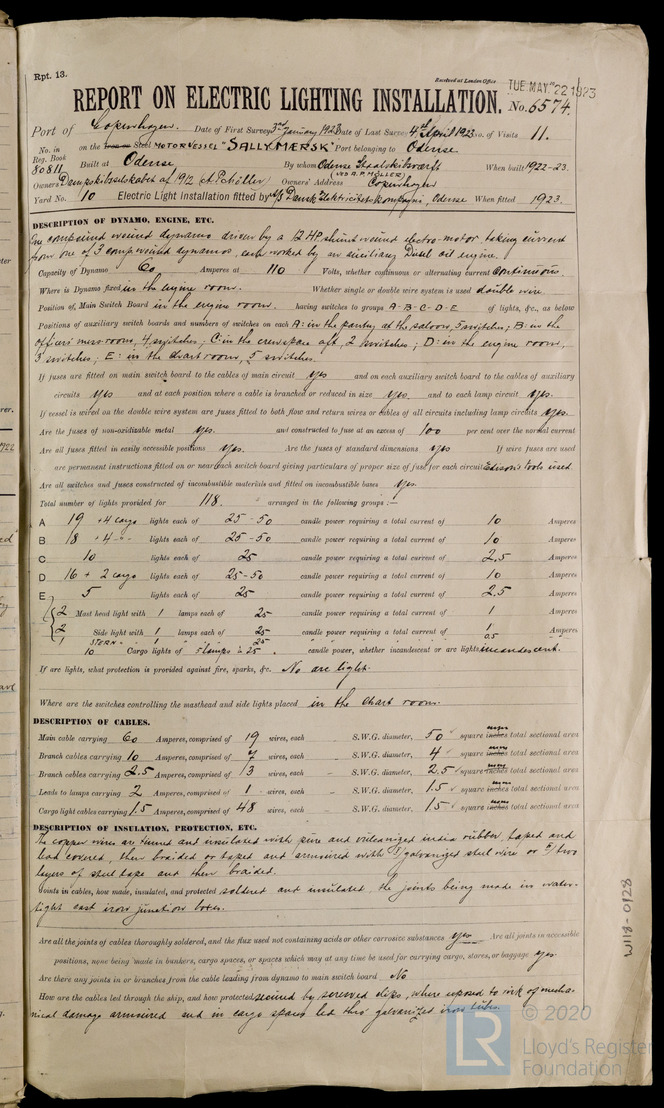 Rpt. 13.
Received at London Office TUE. MAY. 22 1923
REPORT ON ELECTRIC LIGHTING INSTALLATION. No. 6574.
Port of Copenhagen. Date of First Survey 3rd January 1923 Date of Last Survey 4th April 1923 No. of Visits 11.
No. in Reg. Book 80811 on the Steel MOTORVESSEL "SALLY MÆRSK" Port belonging to Odense
Built at Odense By whom Odense Staalskibsværft (VED A.P. MÖLLER) When built 1922-23.
Owners Dampskibsselskabet af 1912 Owners' Address Copenhagen
Yard No. 10 Electric Light Installation fitted by A/S Dansk Elektricitets Kompagni, Odense When fitted 1923.
DESCRIPTION OF DYNAMO, ENGINE, ETC.
One compound wound dynamo driven by a 12 HP shunt wound electro-motor, taking current
from one of 3 compound dynamos, each worked by an auxiliary Diesel oil engine.
Capacity of Dynamo 60 Amperes at 110 Volts, whether continuous or alternating current Continuous.
Where is Dynamo fixed in the engine room. Whether single or double wire system is used double wire
Position of Main Switch Board in the engine room. having switches to groups A-B-C-D-E of lights, &c., as below
Positions of auxiliary switch boards and numbers of switches on each A: in the pantry at the saloon, 5 switches; B: in the
officers' mess-room, 4 switches; C: in the crew space aft, 2 switches; D: in the engine room,
3 switches; E: in the chart room, 5 switches.
If fuses are fitted on main switch board to the cables of main circuit yes and on each auxiliary switch board to the cables of auxiliary
circuits yes and at each position where a cable is branched or reduced in size yes and to each lamp circuit yes.
If vessel is wired on the double wire system are fuses fitted to both flow and return wires or cables of all circuits including lamp circuits yes.
Are the fuses of non-oxidizable metal yes. and constructed to fuse at an excess of 100 per cent over the normal current
Are all fuses fitted in easily accessible positions yes. Are the fuses of standard dimensions yes If wire fuses are used
are permanent instructions fitted on or near each switch board giving particulars of proper size of fuse for each circuit Edison's tools used.
Are all switches and fuses constructed of incombustible materials and fitted on incombustible bases yes.
Total number of lights provided for 118. arranged in the following groups :—
A 19 + 4 cargo lights each of 25-50 candle power requiring a total current of 10 Amperes
B 18 + 4 -"- lights each of 25-50 candle power requiring a total current of 10 Amperes
C 10 lights each of 25 candle power requiring a total current of 2,5 Amperes
D 16 + 2 cargo lights each of 25-50 candle power requiring a total current of 10 Amperes
E 5 lights each of 25 candle power requiring a total current of 2.5 Amperes
2 Mast head light with 1 lamps each of 25 candle power requiring a total current of 1 Amperes
2 Side light with 1 lamps each of 25 candle power requiring a total current of 1 Amperes
1 STERN " 1 " " " 25 0.5
10 Cargo lights of 5 lamps à 25 candle power, whether incandescent or arc lights incandescent.
If arc lights, what protection is provided against fire, sparks, &c. No arc light.
Where are the switches controlling the masthead and side lights placed in the chart room.
DESCRIPTION OF CABLES.
Main cable carrying 60 Amperes, comprised of 19 wires, each – S.W.G. diameter, 50 square inches total sectional area
Branch cables carrying 10 Amperes, comprised of 7 wires, each S.W.G. diameter, 4 square inches total sectional area
Branch cables carrying 2.5 Amperes, comprised of 13 wires, each – S.W.G. diameter, 2.5 square inches total sectional area
Leads to lamps carrying 2 Amperes, comprised of 1 wires, each S.W.G. diameter, 1.5 square inches total sectional area
Cargo light cables carrying 1.5 Amperes, comprised of 48 wires, each S.W.G. diameter, 1.5 square inches total sectional area
DESCRIPTION OF INSULATION, PROTECTION, ETC.
The copper wires are tinned and insulated with pure and vulcanized india rubber, taped and
lead covered, then braided or taped and armoured with galvanized steel wire or two
layers of steel tape and then braided.
Joints in cables, how made, insulated, and protected soldered and insulated, the joints being made in water-
tight cast iron junction boxes.
Are all the joints of cables thoroughly soldered, and the flux used not containing acids or other corrosive substances yes Are all joints in accessible
positions, none being made in bunkers, cargo spaces, or spaces which may at any time be used for carrying cargo, stores, or baggage yes.
Are there any joints in or branches from the cable leading from dynamo to main switch board No
How are the cables led through the ship, and how protected secured by screwed clips, where exposed to risk of mecha-
nical damage armoured and in cargo spaces led thro' galvanized iron tubes.
W1118-0128
LR © 2020
Lloyd's Register
Foundation